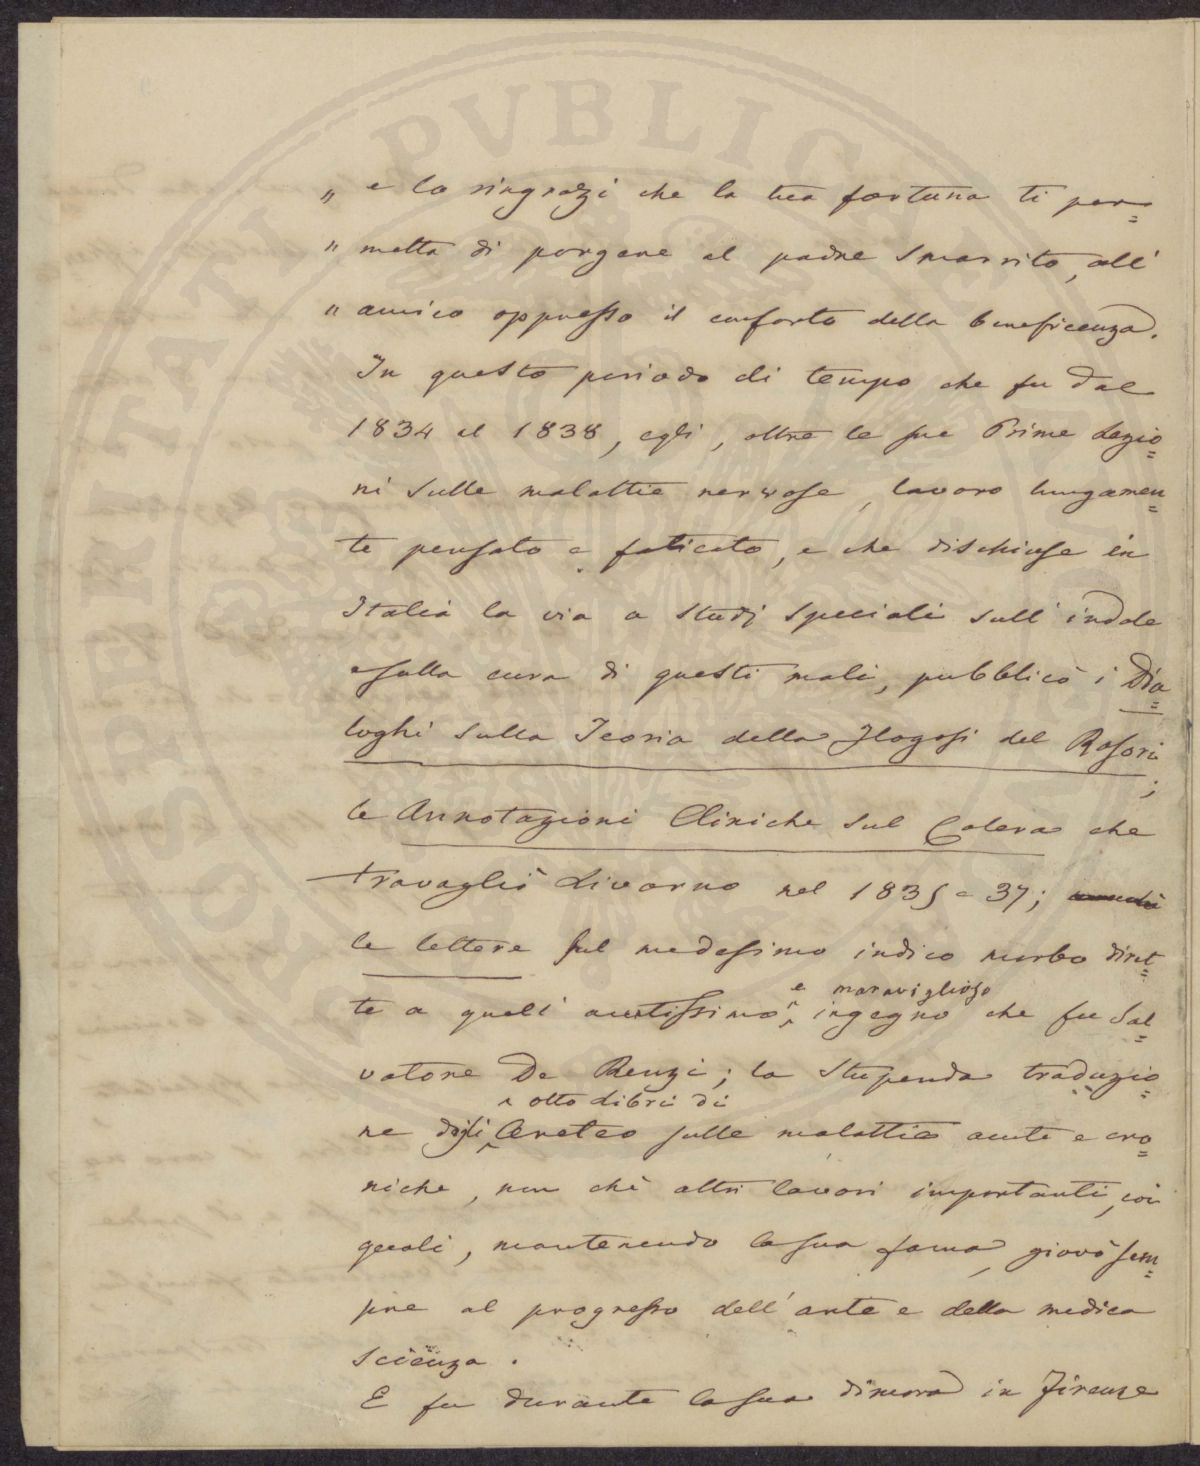 PVBLICAE
PROSPERITATI
„ e lo ringrazi che la tua fortuna ti per=
„ metta di porgere al padre smarrito, all'
„ amico oppresso il conforto della beneficenza.
In questo periodo di tempo che fu dal
1834 al 1838, egli, oltre le sue Prime Lezio=
ni sulle malattie nervose, lavoro lungamen=
te pensato e faticato, e che dischiuse in
Italia la via a studj speciali sull'indole
e sulla cura di questi mali, pubblicò i Dia=
loghi sulla Teoria della Flogosi del Rasori;
le Annotazioni Cliniche sul Colera che
travagliò Livorno nel 1835 e 37;
le lettere sul medesimo indico morbo diret=
e maraviglioso
te a quell'acutissimo ingegno che fu Sal=
vatore De Renzi; la stupenda traduzio=
otto Libri di
ne degli Areteo sulle malattie acute e cro=
niche, non chè altri lavori importanti, coi
quali, mantenendo la sua fama, giovò sem=
pre al progresso dell'arte e della medica
scienza.
E fu durante la sua dimora in Firenze